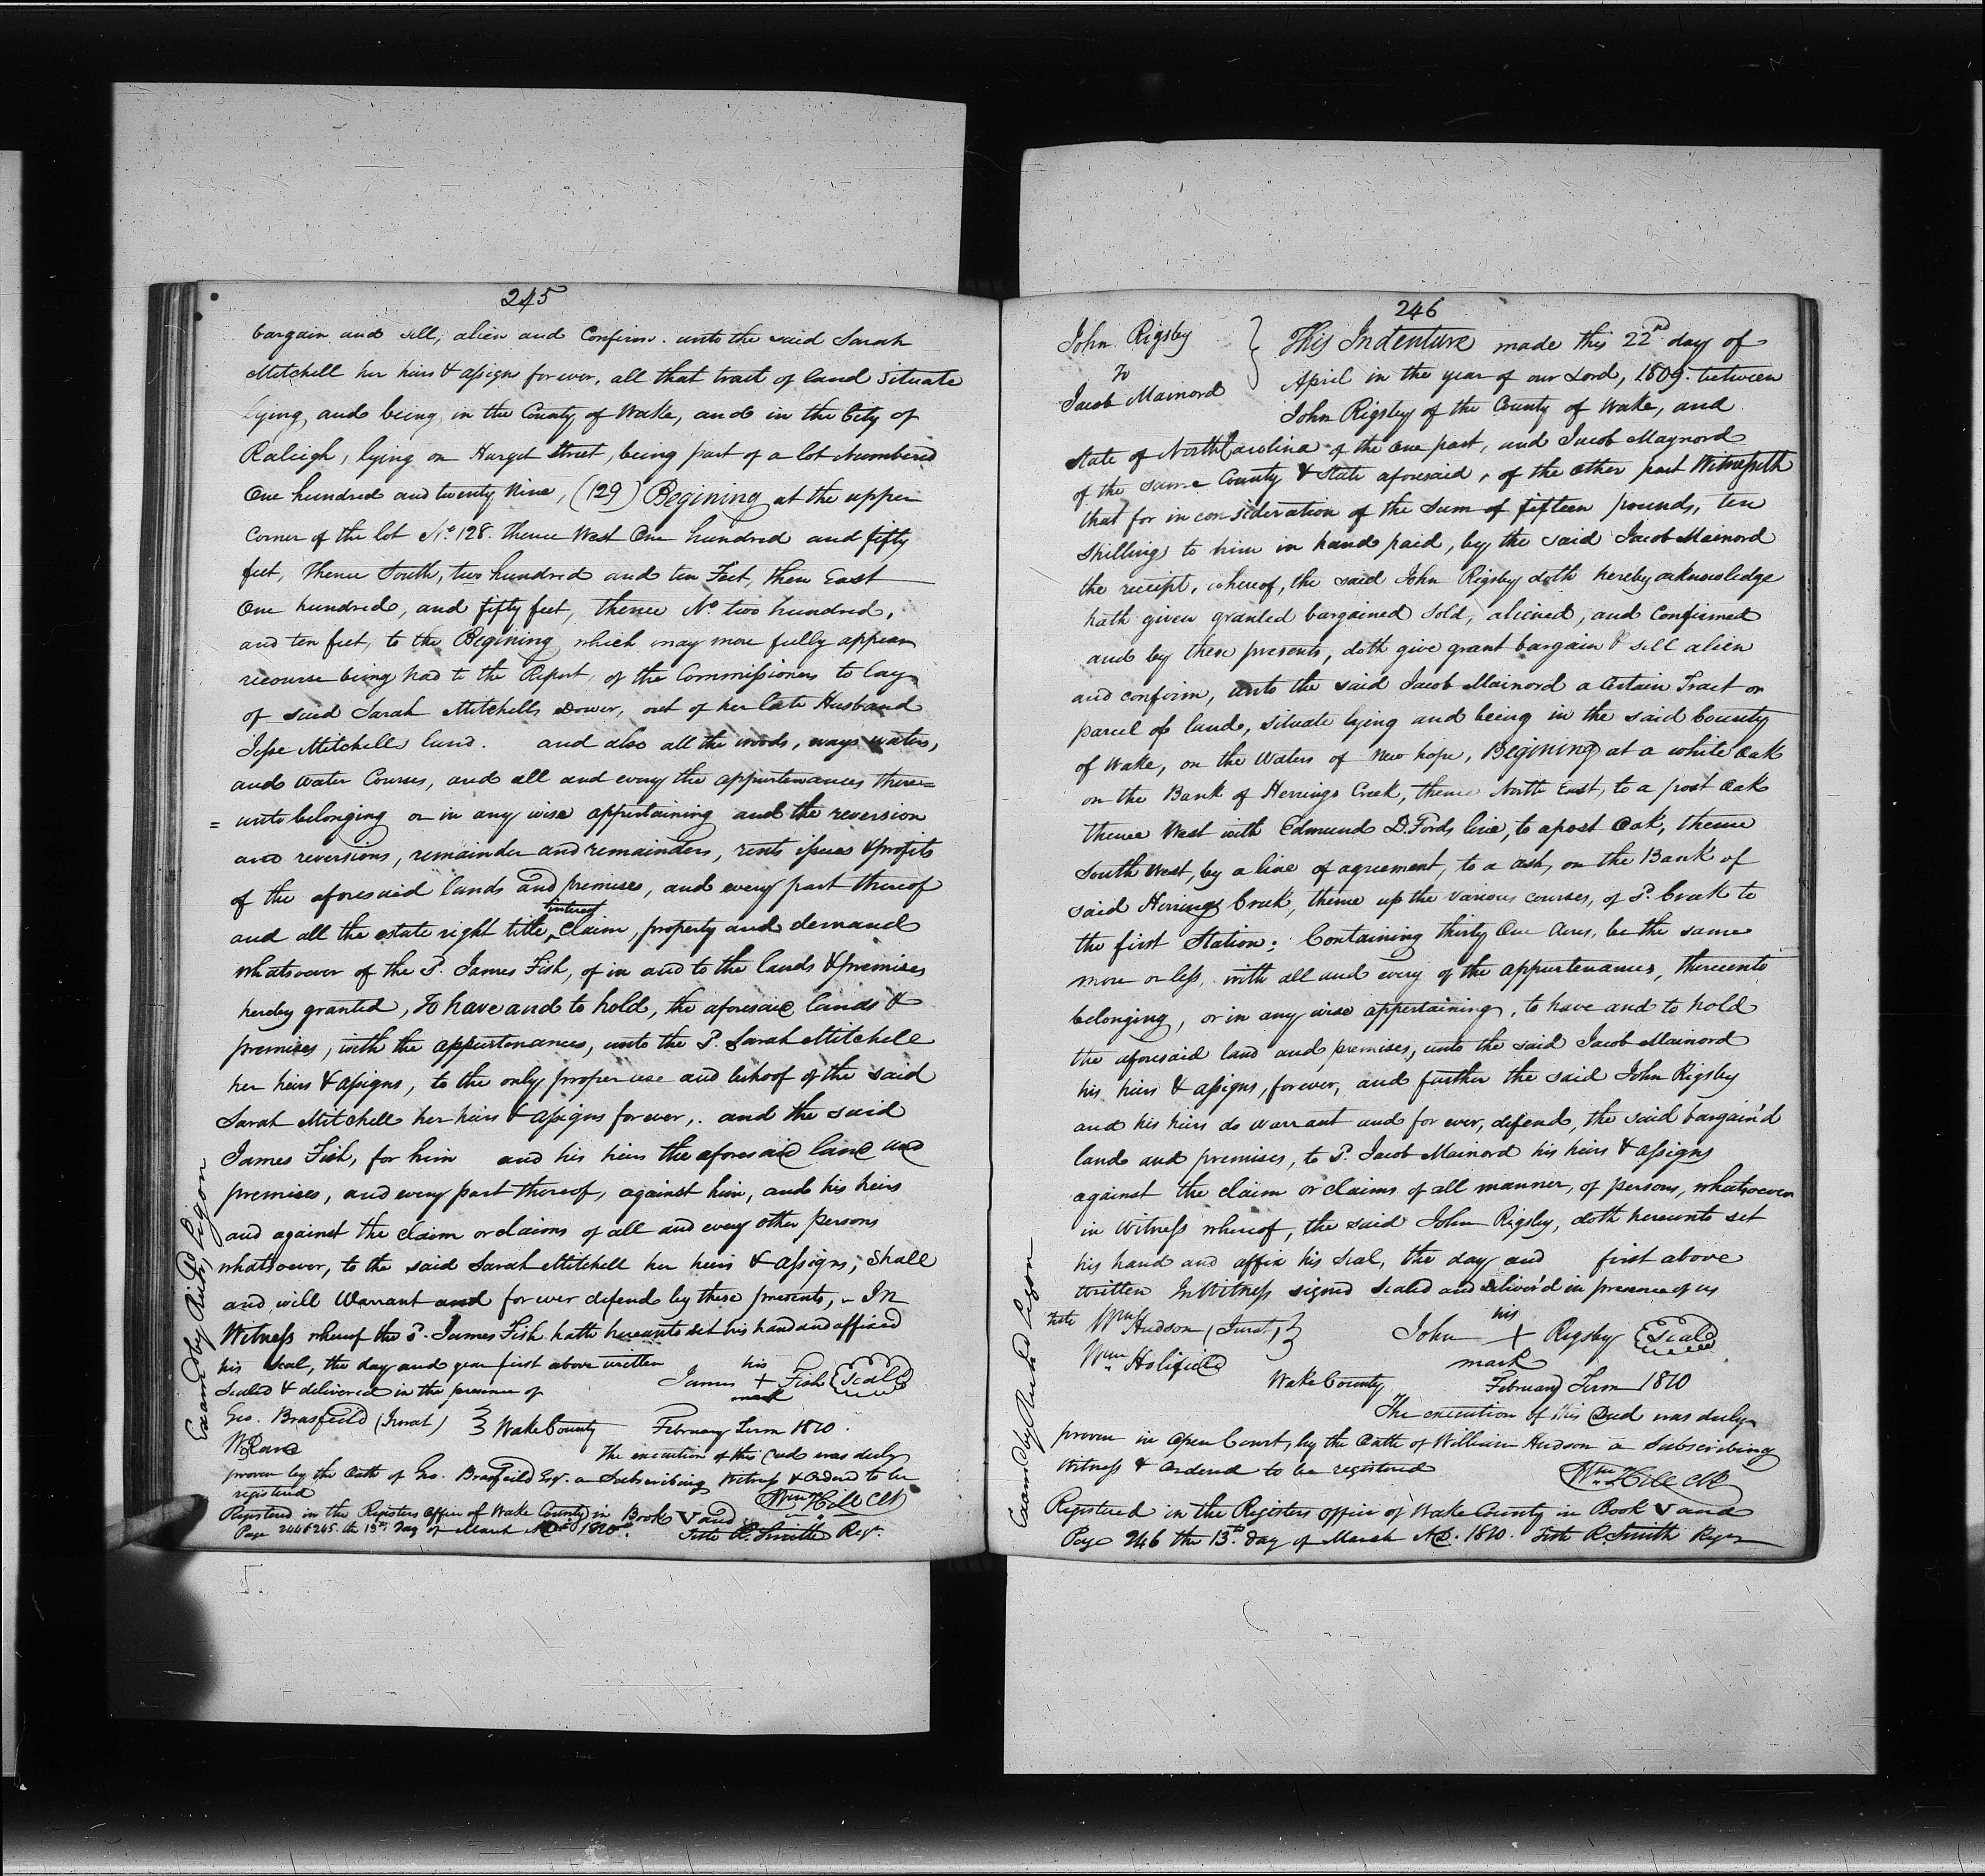 245
bargain and sell, alien and Confirm. unto the said Sarah
Mitchell her heirs & assigns forever, all that tract of land Situate
lying, and being, in the County of Wake, and in the City of
Raleigh, lying on Harget Street, being part of a lot Numbered
One hundred and twenty Nine, (129) Begining at the upper
Corner of the lot No. 128. thence West One hundred and fifty
feet, thence South, two hundred and ten Feet, then East
One hundred, and fifty feet, thence No. two hundred,
and ten feet, to the Begining which may more fully appear
recourse being had to the Report, of the Commissioners to lay
of said Sarah Mitchells Dower, out of her late Husband
Jesse Mitchell land. and also all the woods, ways waters,
and Water Courses, and all and every the appurtenances there=
= unto belonging or in any wise appertaining and the reversion
and reversions, remainder and remainders, rents issues & profits
of the aforesaid lands and premises, and every part thereof
and all the estate right title, interest Claim, property and demand
whatsoever of the Sd. James Fish, of in and to the lands & premises
hereby granted, To have and to hold, the aforesaid lands &
premises, with the appurtenances, unto the Sd. Sarah Mitchell
her heirs & assigns, to the only proper use and behoof of the said
Sarah Mitchell her heirs & assigns forever,. and the said
James Fish, for him and his heirs the aforesaid land and
premises, and every part thereof, against him, and his heirs
and against the Claim or claims of all and every other persons
whatsoever, to the said Sarah Mitchell her heirs & assigns; Shall
and will Warrant and forever defend by these presents, - In
Witness whereof the Sd. James Fish hath hereunto set his hand and affixed
his seal, the day and year first above written
Sealed & delivered in the presence of
his
James + Fish (Seal)
mark
Geo. Brasfeild (Jurat) } Wake County February Term 1810.
The execution of this Deed was duly
proven by the Oath of Geo. Brasfeild Esqr. a Subscribing Witness & Ordered to be
registered Wm Hill Clk
Registered in the Registers Office of Wake County in Book V and
Page 244 & 245. the 13th Day of March AD 1810. Teste R. Smith Regr.
Examd by Richd Ligon
246
John Rigsby
To
Jacob Mainord
This Indenture made this 22nd day of
April in the year of our Lord, 1809. between
John Rigsby of the County of Wake, and
State of North Carolina of the One part, and Jacob Maynord
of the same County & State aforesaid, of the other part Witnesseth
that for in consideration of the Sum of fifteen pounds, ten
Shillings to him in hand paid, by the said Jacob Mainord
the receipt, whereof, the said John Rigsby doth hereby acknowledge
hath given granted bargained Sold, aliened, and Confirmed
and by these presents, doth give grant bargain & sell alien
and confirm, unto the said Jacob Mainord a Certain Tract or
parcel of land, situate lying and being in the said County
of Wake, on the Waters of New hope, Begining at a white Oak
on the Bank of Herrings Creek, thence North East, to a post Oak
thence West with Edmund D. Fords line, to a post Oak, thence
South West, by a line of agreement, to a ash, on the Bank of
said Herrings Creek, thence up the various courses, of Sd. Creek to
the first Station; Containing thirty One Acres, be the same
more or less, with all and every of the appurtenances, thereunto
belonging, or in any wise appertaining, to have and to hold
the aforesaid land and premises, unto the said Jacob Mainord
his heirs & assigns, forever, and further the said John Rigsby
and his heirs do warrant and for ever, defend, the said bargain'd
land and premises, to Sd. Jacob Mainord his heirs & assigns
against the claim or claims of all manner, of persons, whatsoever
in Witness whereof, the said John Rigsby, doth hereunto set
his hand and affix his Seal, the day and first above
written In Witness signed Sealed and Deliver'd in presence of us
Teste Wm Hudson (Jurat) }
Wm Holifield
his
John + Rigsby (Seal)
mark
Wake County February Term 1810
The execution of this Deed was duly
proven in Open Court, by the Oath of William Hudson a Subscribing
Witness & Ordered to be registered Wm Hill Clk
Registered in the Registers office of Wake County in Book V and
Page 246 the 13th. day of March AD. 1810. Teste R. Smith Regr
Examd by Richd Ligon